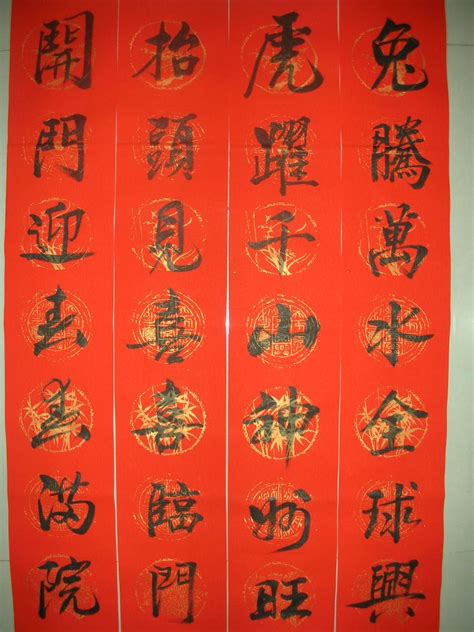 兔騰萬水全球興
虎躍千山神州旺
抬頭見喜喜臨門
開門迎春春滿院